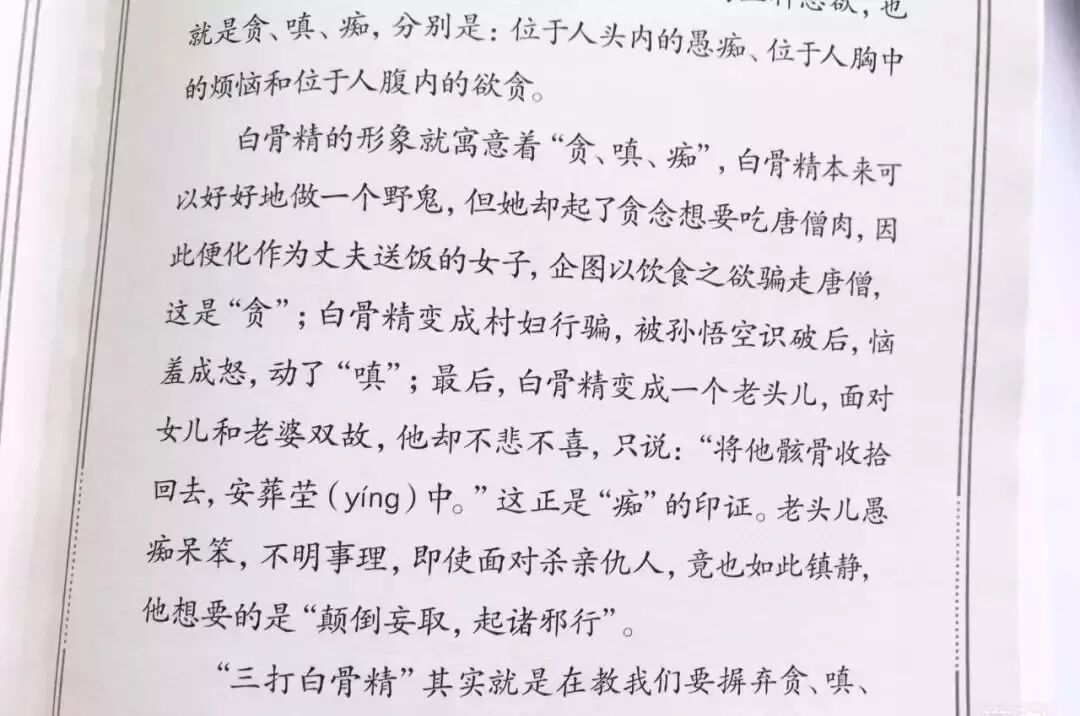 恶欲，也
就是贪、嗔、痴，分别是：位于人头内的愚痴、位于人胸中
的烦恼和位于人腹内的欲贪。
白骨精的形象就寓意着“贪、嗔、痴”，白骨精本来可
以好好地做一个野鬼，但她却起了贪念想要吃唐僧肉，因
此便化作为丈夫送饭的女子，企图以饮食之欲骗走唐僧，
这是“贪”；白骨精变成村妇行骗，被孙悟空识破后，恼
羞成怒，动了“嗔”；最后，白骨精变成一个老头儿，面对
女儿和老婆双故，他却不悲不喜，只说：“将他骸骨收拾
回去，安葬茔（yíng）中。”这正是“痴”的印证。老头儿愚
痴呆笨，不明事理，即使面对杀亲仇人，竟也如此镇静，
他想要的是“颠倒妄取，起诸邪行”。
“三打白骨精”其实就是在教我们要摒弃贪、嗔、